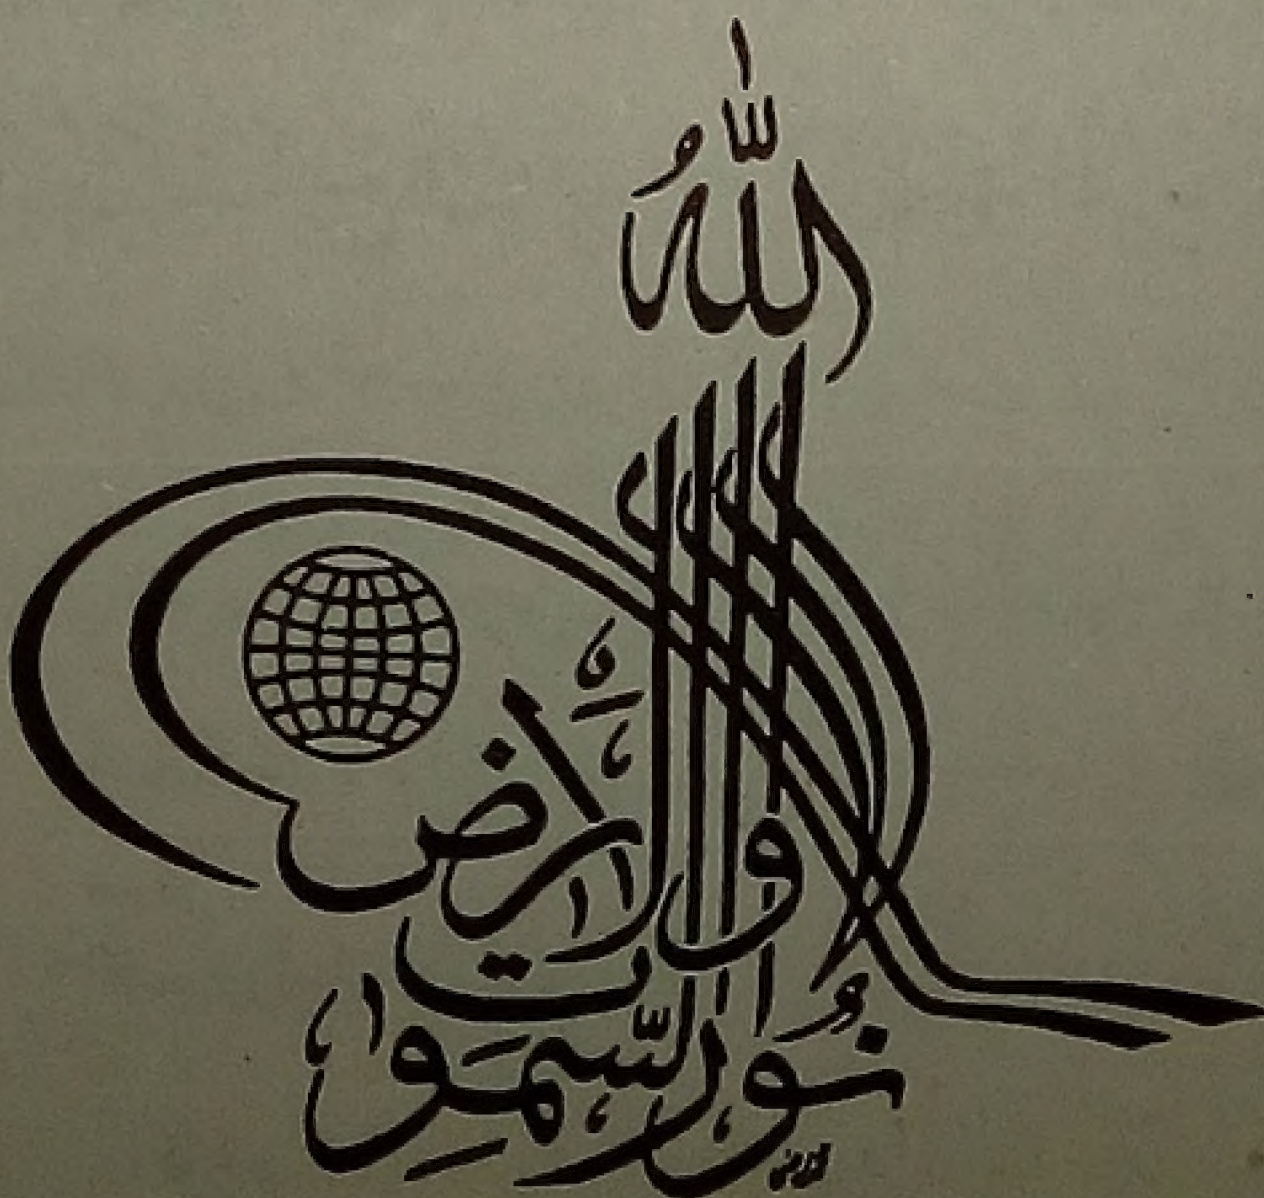 اللّٰهُ
نُورُ السَّمٰوَاتِ
وَالْاَرْضِ